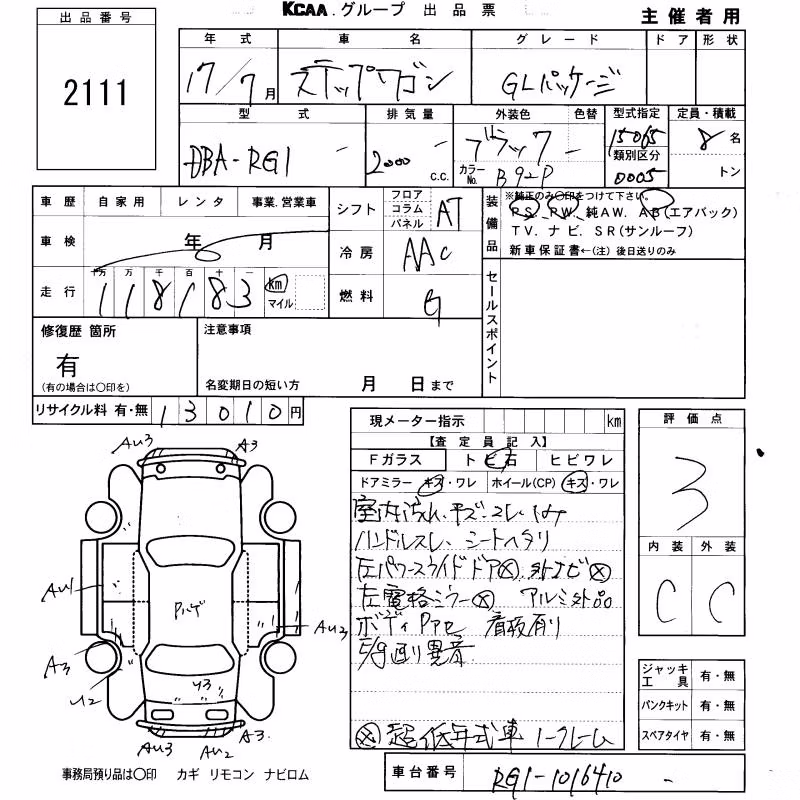 KCAA.グループ 出品票
主催者用
出品番号
2111
年式 車名 グレード ドア 形状
17/7月 ステップワゴン GLパッケージ
型式 排気量 外装色 色替 型式指定 定員・積載
DBA-RG1 - 2000 - c.c. ブラック - 15065 8 名
カラーNo. B92P 類別区分 0005 トン
車歴 自家用 レンタ 事業.営業車
シフト フロア コラム パネル AT
車検 年 月
冷房 AAC
走行 十万 万 千 百 十 一
118183 km マイル
燃料 G
装備品
※純正のみ○印をつけて下さい。
PS、PW、純AW. AB(エアバック)
TV. ナビ. SR(サンルーフ)
新車保証書←(注) 後日送りのみ
セールスポイント
修復歴 箇所
有
(有の場合は○印を)
注意事項
名変期日の短い方 月 日まで
リサイクル料 有・無 13010円
現メーター指示 km
【査定員記入】
Fガラス トビ石 ヒビワレ
ドアミラー キズ・ワレ ホイール(CP) キズ・ワレ
室内汚れ、キズ・コレ・
ハンドルスレ、シートヘタリ
左パワースライドドア⊗
左電格ミラー⊗ アルミ外品
ボディ 看板有り
異音
超低年式車 ノークレーム
評価点
3
内装 外装
C C
ジャッキ工具 有・無
パンクキット 有・無
スペアタイヤ 有・無
AU3 A3
AU1
AU2
A3
U2
U3
AU3 AU2 A3.
事務局預り品は○印 カギ リモコン ナビロム
車台番号 RG1-1016410 -